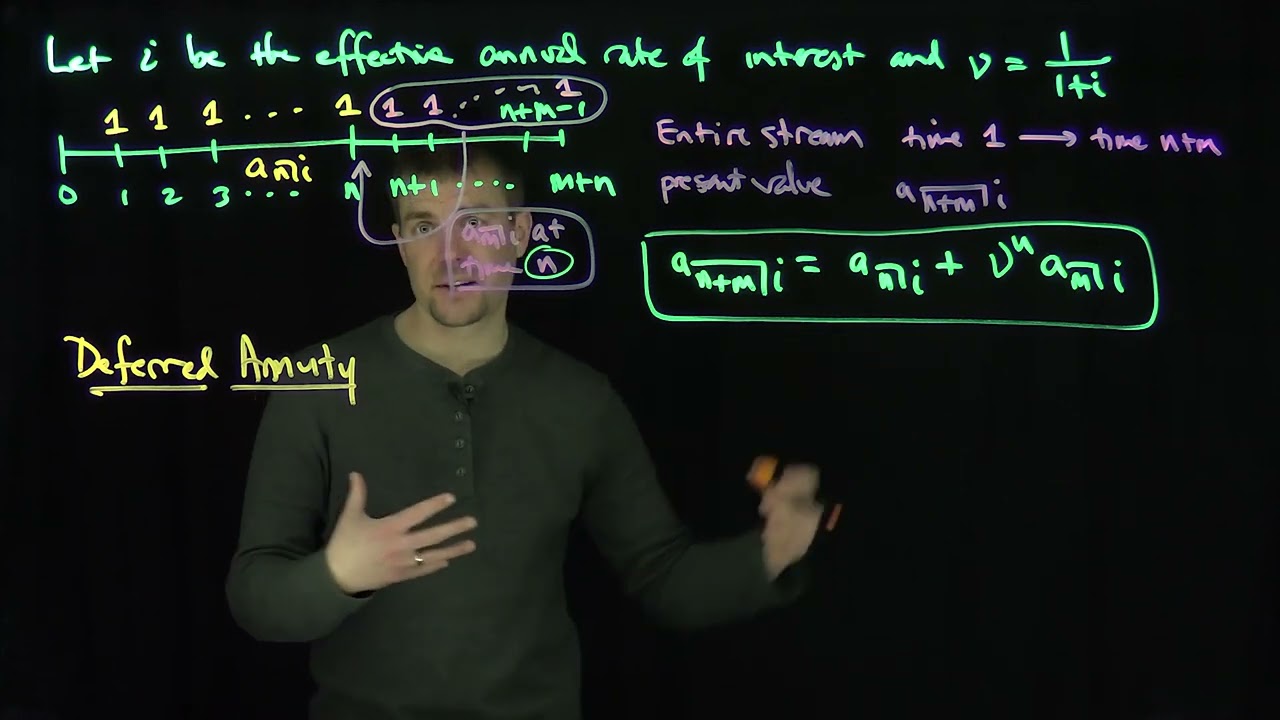 Let i be the effective annual rate of interest and v = 1/(1+i)
1 1 1 ... 1 1 1 ... 1
n+m-1
0 1 2 3 ... n n+1 .... m+n
a_n̅|i
a_m̅|i at
time n
Entire stream time 1 → time n+m
present value a_n+m̅|i
a_n+m̅|i = a_n̅|i + v^n a_m̅|i
Deferred Annuty